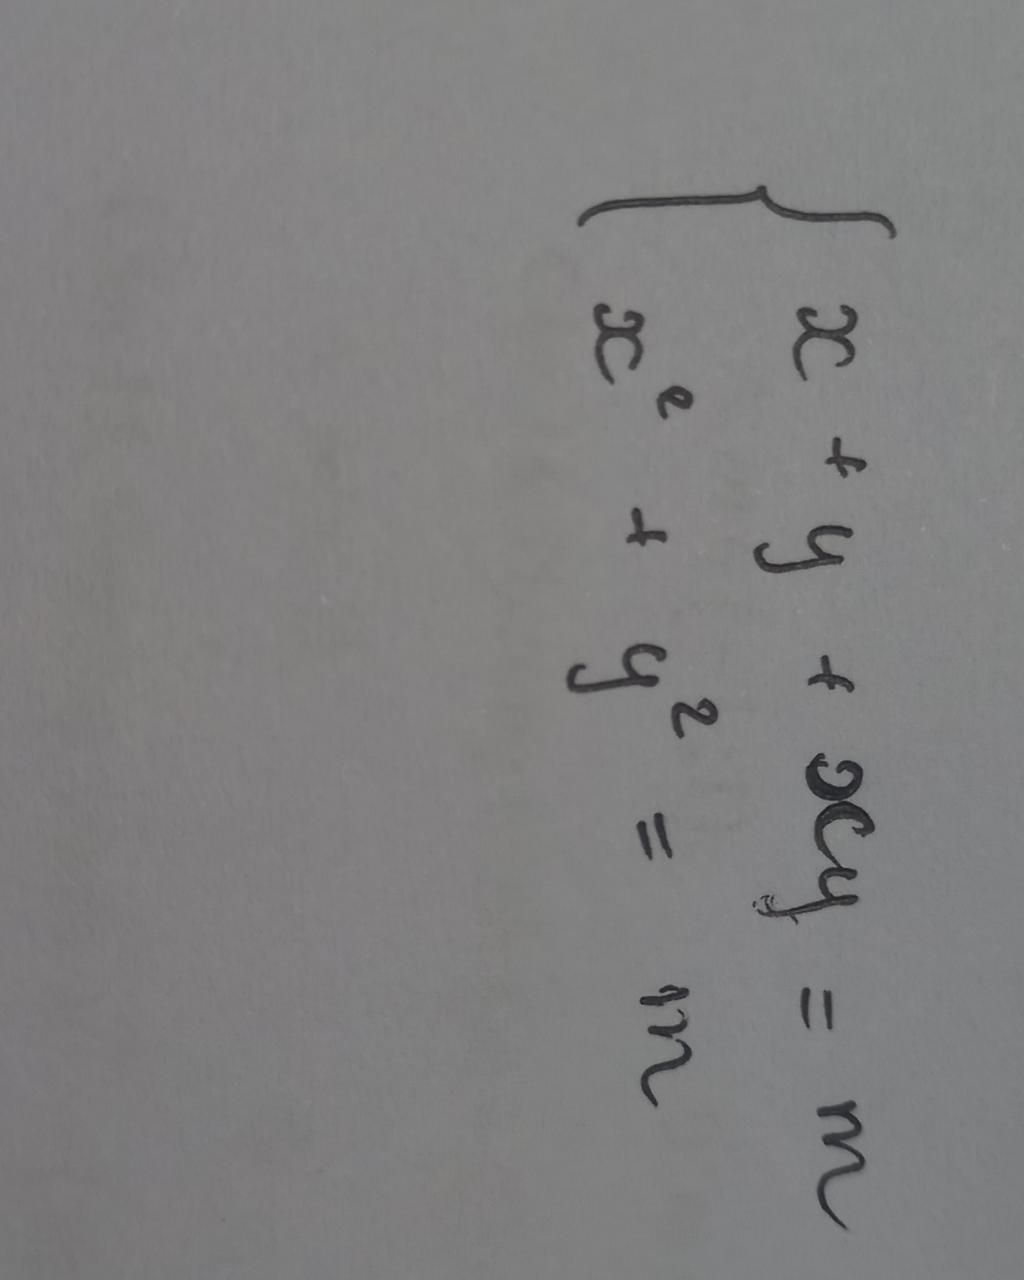 { x + y + xy = m
x² + y² = m